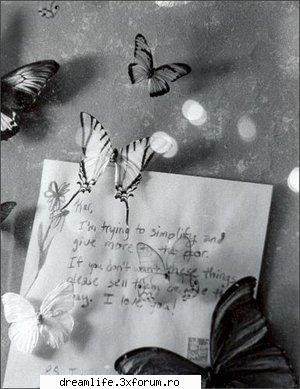 I'm trying to simplify and
give more to the poor.
If you don't want these things
please sell them or
I love you!
P.S. I
dreamlife.3xforum.ro